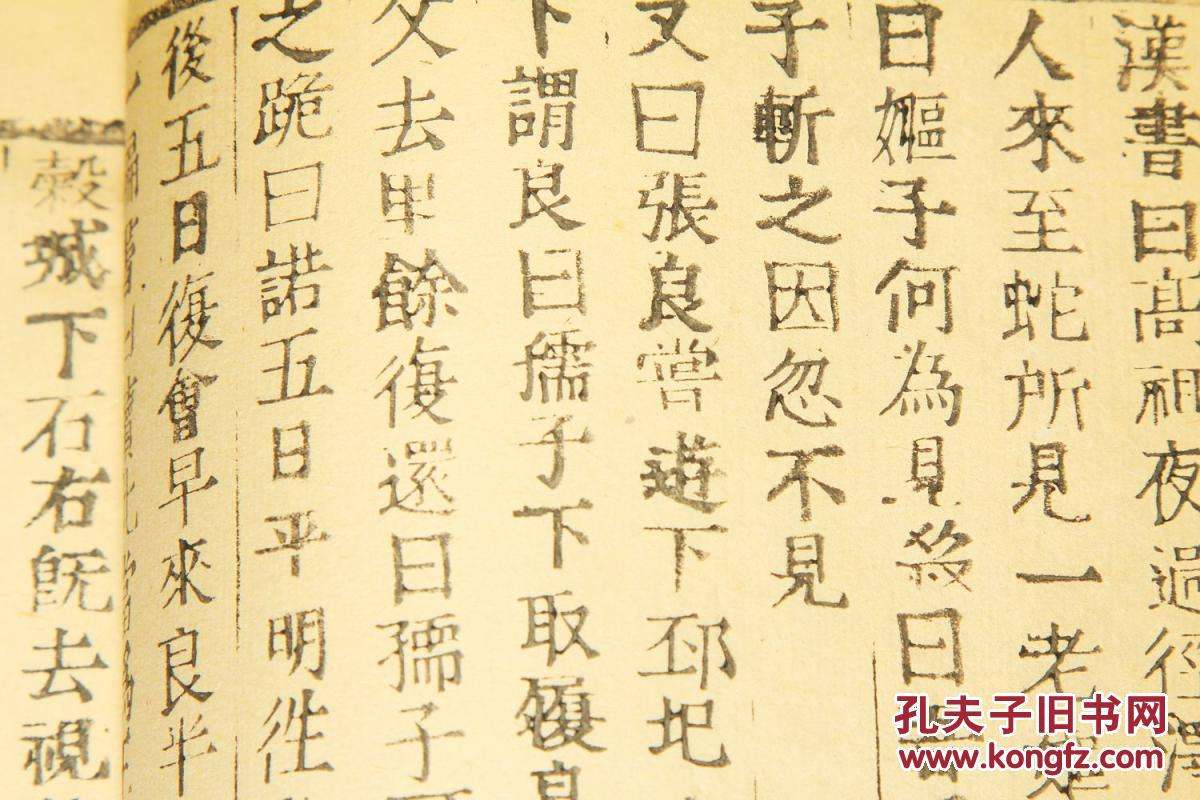 漢書曰高祖夜過徑澤
人來至蛇所見一老嫗
曰嫗子何為見殺曰吾
子斬之因忽不見
又曰張良嘗遊下邳圯
下謂良曰孺子下取履良
父去里餘復還曰孺子可
之跪曰諾五日平明往
後五日復會早來良半
穀城下石右既去視
孔夫子旧书网
www.kongfz.com